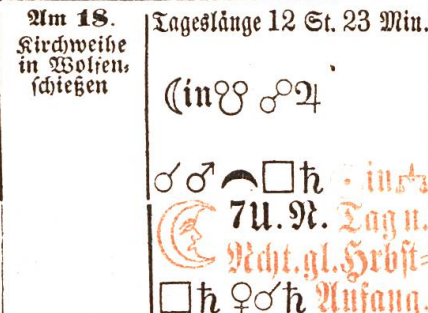 Am 18.
Kirchweihe
in Wolfen-
schießen
Tageslänge 12 St. 23 Min.
☾in☋ ☍♃
☌ ♂ □♄ in♎
7U. N. Tag u.
Ncht. gl. Hrbst-
□♄ ♀☌♄ Anfang.